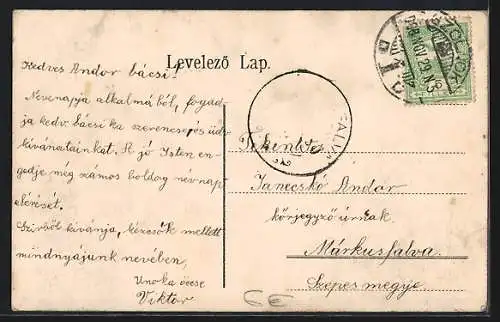 Levelező Lap.
Kedves Andor bácsi!
Nevenapja alkalmából, fogad-
ja kedv. bácsika szerencsés üd-
kívánatainkat. A jó Isten en-
gedje még számos boldog névnap
elérését.
Szívből kivánja, kézcsók mellett
mindnyájunk nevében,
Unoka öcsse
Viktor
Tekintetes
Janecskó Andor
körjegyző úrnak
Márkusfalva.
Szepes megye.
908 NOV 29